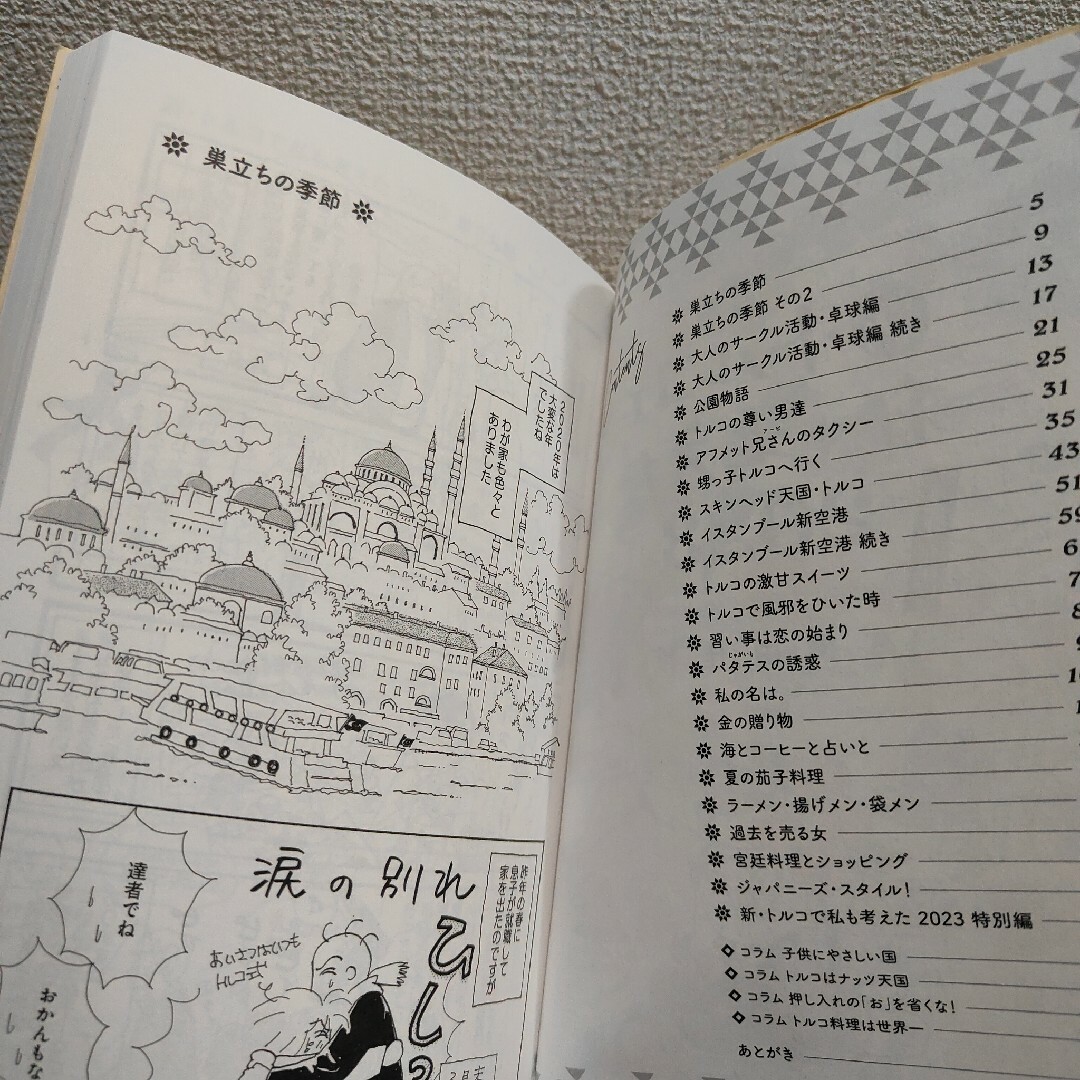 巣立ちの季節
2020年は
大変な年
でしたね
わが家も色々と
ありました
昨年の春に
息子が就職して
家を出たのですが
涙の別れ
ひしっ
達者でね
あいさつはいつも
トルコ式
おかんもな
巣立ちの季節 5
巣立ちの季節 その2 9
大人のサークル活動・卓球編 13
大人のサークル活動・卓球編 続き 17
公園物語 21
トルコの尊い男達 25
アフメット兄さんのタクシー 31
甥っ子トルコへ行く 35
スキンヘッド天国・トルコ 43
イスタンブール新空港 51
イスタンブール新空港 続き 59
トルコの激甘スイーツ
トルコで風邪をひいた時
習い事は恋の始まり
パタテスの誘惑
私の名は。
金の贈り物
海とコーヒーと占いと
夏の茄子料理
ラーメン・揚げメン・袋メン
過去を売る女
宮廷料理とショッピング
ジャパニーズ・スタイル!
新・トルコで私も考えた 2023 特別編
コラム 子供にやさしい国
コラム トルコはナッツ天国
コラム 押し入れの「お」を省くな!
コラム トルコ料理は世界一
あとがき